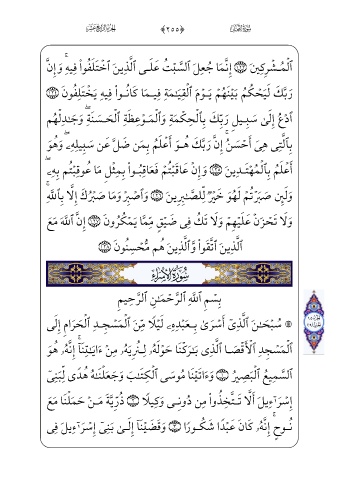 سورة النحل ﴿٢٥٥﴾ الجزء الرابع عشر
ٱلْمُشْرِكِينَ ١٢٣ إِنَّمَا جُعِلَ ٱلسَّبْتُ عَلَى ٱلَّذِينَ ٱخْتَلَفُوا۟ فِيهِ ۚ وَإِنَّ
رَبَّكَ لَيَحْكُمُ بَيْنَهُمْ يَوْمَ ٱلْقِيَـٰمَةِ فِيمَا كَانُوا۟ فِيهِ يَخْتَلِفُونَ ١٢٤
ٱدْعُ إِلَىٰ سَبِيلِ رَبِّكَ بِٱلْحِكْمَةِ وَٱلْمَوْعِظَةِ ٱلْحَسَنَةِ ۖ وَجَـٰدِلْهُم
بِٱلَّتِى هِىَ أَحْسَنُ ۚ إِنَّ رَبَّكَ هُوَ أَعْلَمُ بِمَن ضَلَّ عَن سَبِيلِهِۦ ۖ وَهُوَ
أَعْلَمُ بِٱلْمُهْتَدِينَ ١٢٥ وَإِنْ عَاقَبْتُمْ فَعَاقِبُوا۟ بِمِثْلِ مَا عُوقِبْتُم بِهِۦ ۖ
وَلَئِن صَبَرْتُمْ لَهُوَ خَيْرٌ لِّلصَّـٰبِرِينَ ١٢٦ وَٱصْبِرْ وَمَا صَبْرُكَ إِلَّا بِٱللَّهِ ۚ
وَلَا تَحْزَنْ عَلَيْهِمْ وَلَا تَكُ فِى ضَيْقٍ مِّمَّا يَمْكُرُونَ ١٢٧ إِنَّ ٱللَّهَ مَعَ
ٱلَّذِينَ ٱتَّقَوا۟ وَّٱلَّذِينَ هُم مُّحْسِنُونَ ١٢٨
سُورَةُ الإِسْرَاءِ
بِسْمِ ٱللَّهِ ٱلرَّحْمَـٰنِ ٱلرَّحِيمِ
۞ سُبْحَـٰنَ ٱلَّذِىٓ أَسْرَىٰ بِعَبْدِهِۦ لَيْلًا مِّنَ ٱلْمَسْجِدِ ٱلْحَرَامِ إِلَى
ٱلْمَسْجِدِ ٱلْأَقْصَا ٱلَّذِى بَـٰرَكْنَا حَوْلَهُۥ لِنُرِيَهُۥ مِنْ ءَايَـٰتِنَآ ۚ إِنَّهُۥ هُوَ
ٱلسَّمِيعُ ٱلْبَصِيرُ ١ وَءَاتَيْنَا مُوسَى ٱلْكِتَـٰبَ وَجَعَلْنَـٰهُ هُدًى لِّبَنِىٓ
إِسْرَٰٓءِيلَ أَلَّا تَتَّخِذُوا۟ مِن دُونِى وَكِيلًا ٢ ذُرِّيَّةَ مَنْ حَمَلْنَا مَعَ
نُوحٍ ۚ إِنَّهُۥ كَانَ عَبْدًا شَكُورًا ٣ وَقَضَيْنَآ إِلَىٰ بَنِىٓ إِسْرَٰٓءِيلَ فِى